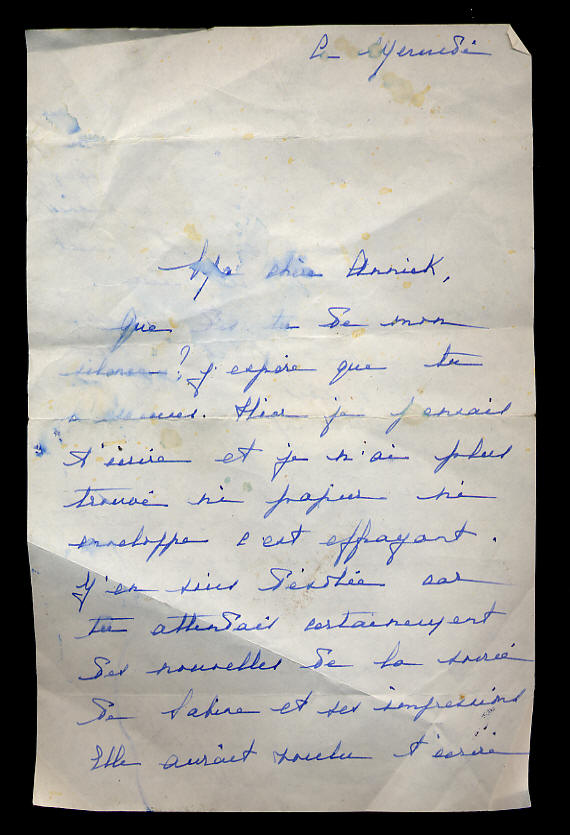 Ma chère Annick,
que dis tu de mon
silence ? J'espère que tu
Hier je pensais
t'écrire et je n'ai plus
trouvé ni papier ni
enveloppe c'est effrayant.
J'en suis désolée car
tu attendais certainement
des nouvelles de la soirée
de Sabine et ses impressions
Elle aurait voulu t'écrire